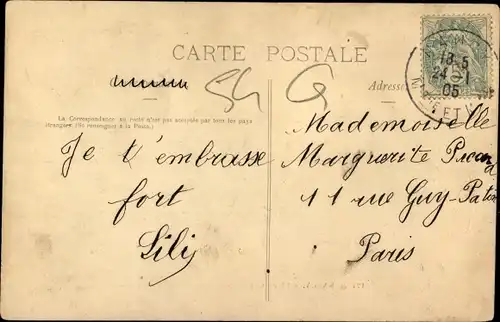 CARTE POSTALE
Adresse
La Correspondance au recto n'est pas acceptée par tous les pays
étrangers (Se renseigner à la Poste).
Je t'embrasse
fort
Lili
Mademoiselle
Marguerite Picard
11 rue Guy-Patin
Paris
18-5
24 -1
05
ET